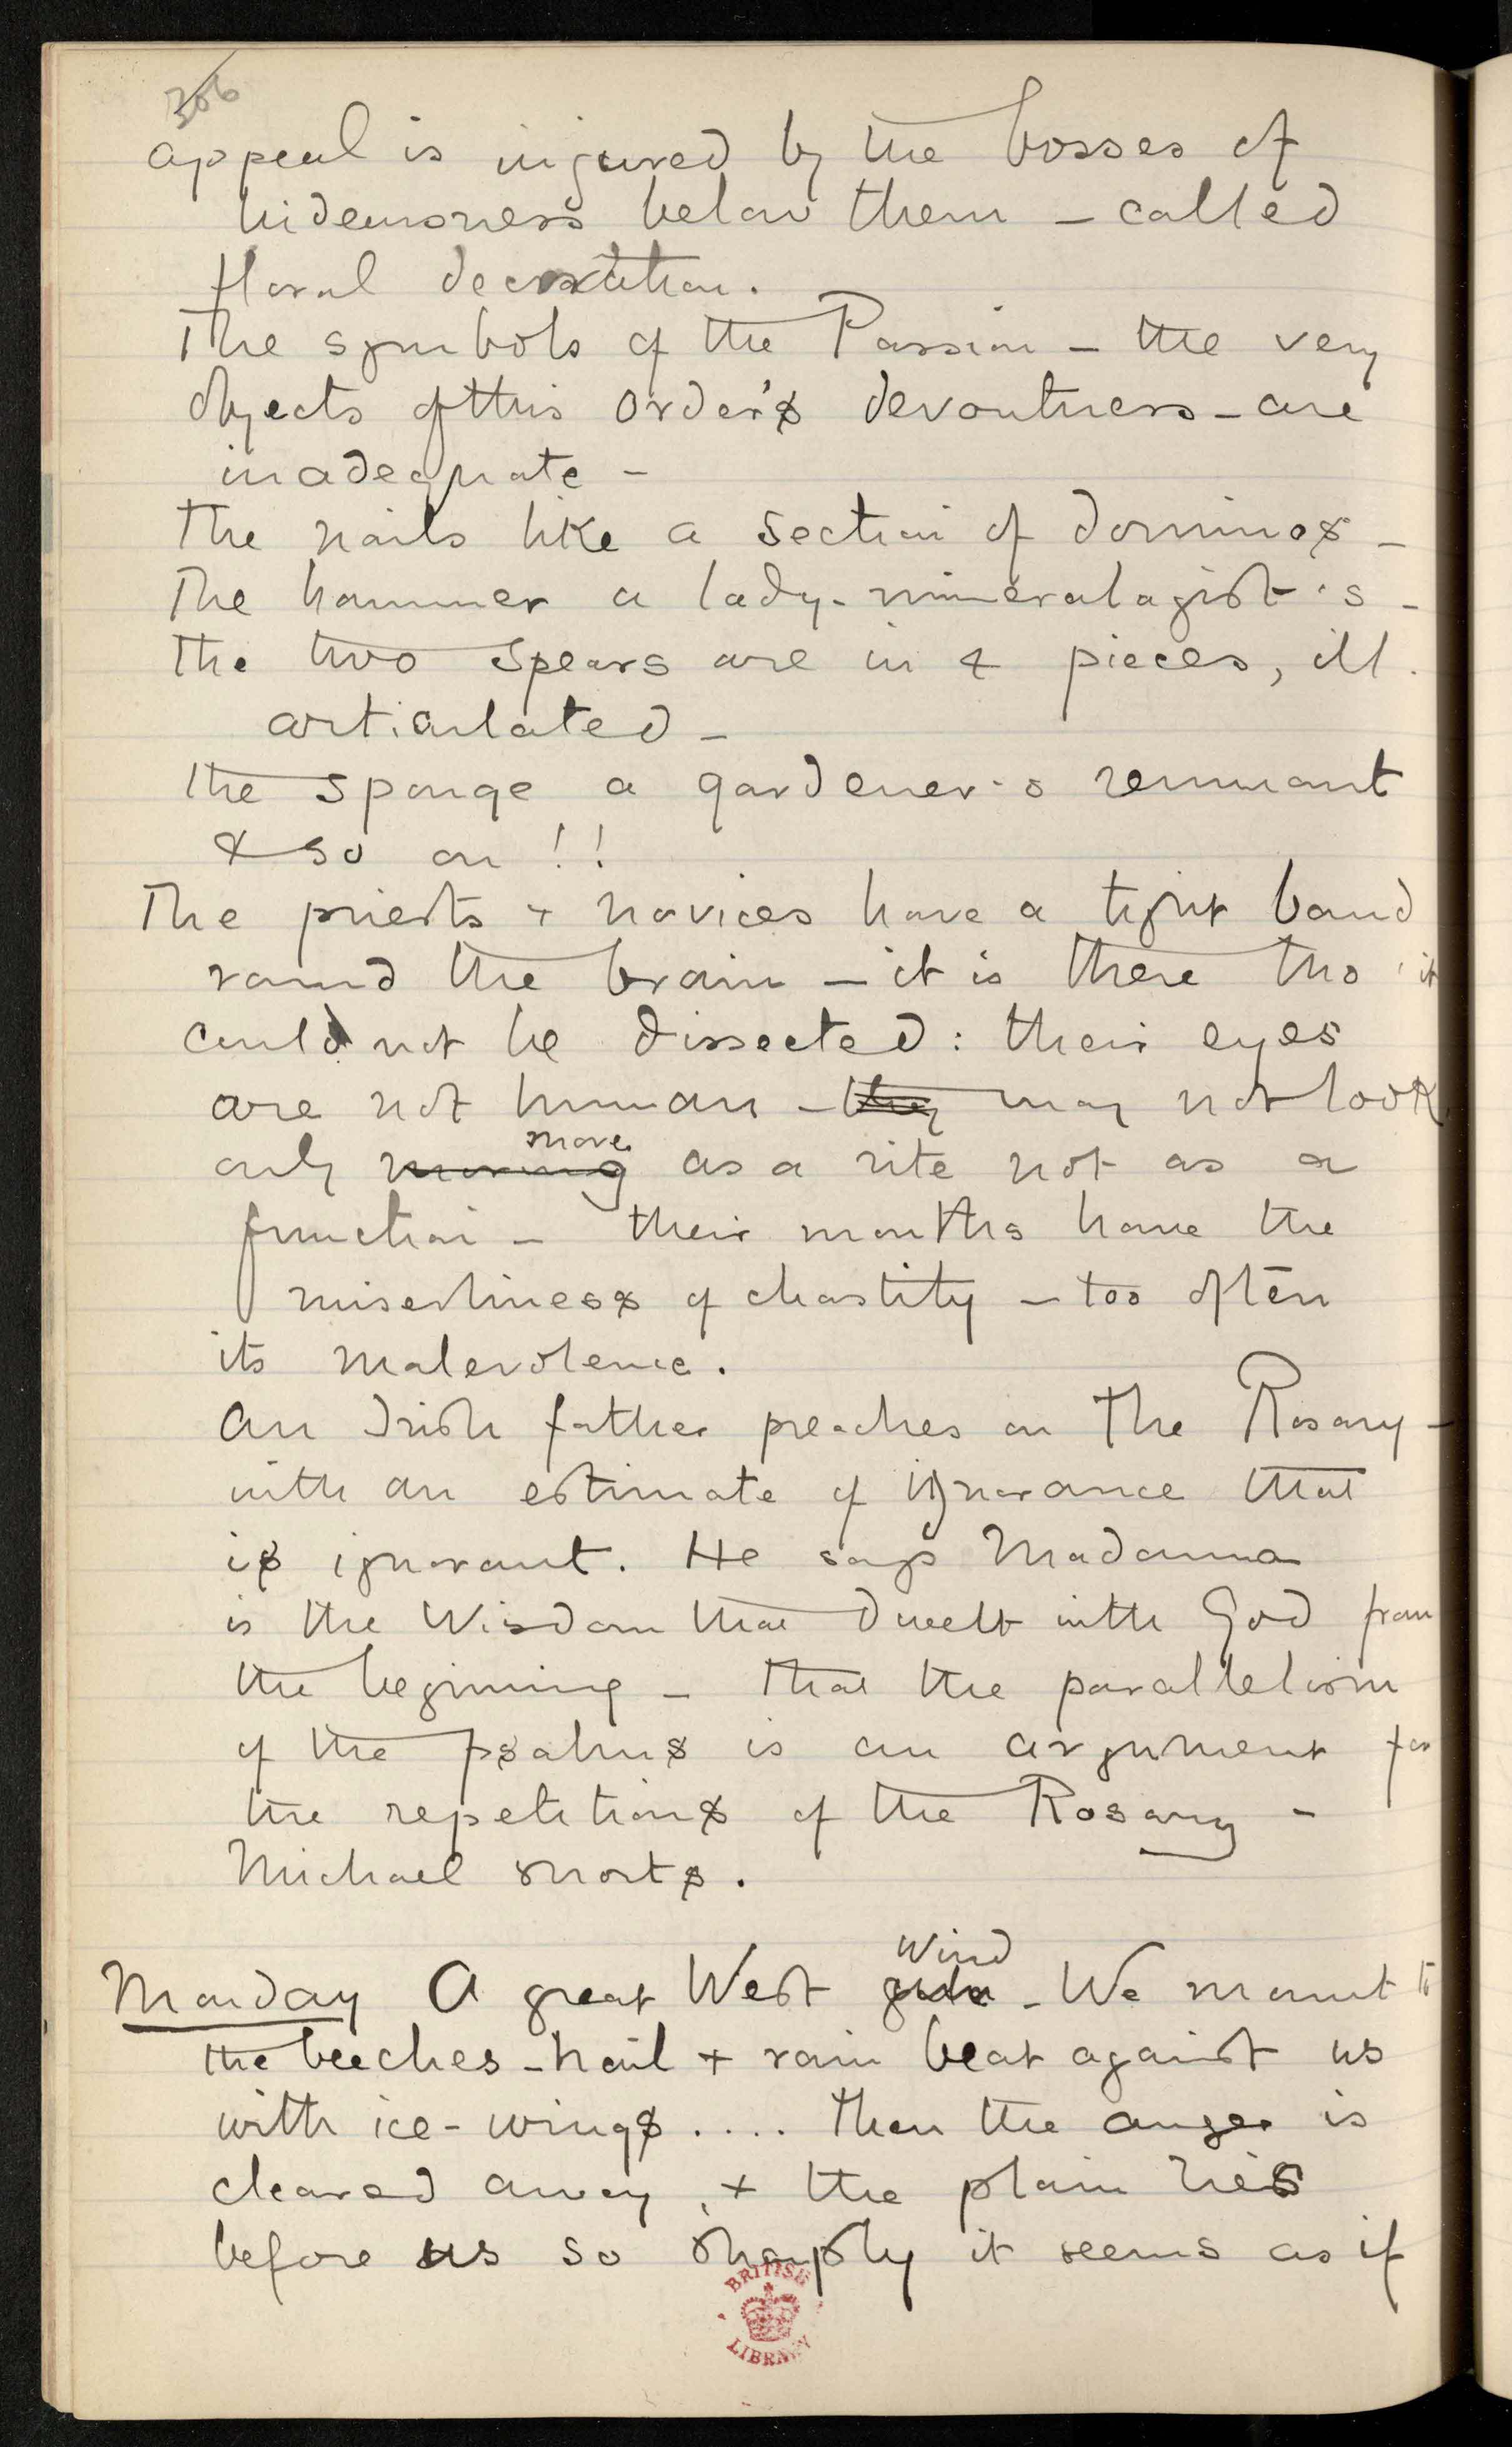 306
appeal is injured by the bosses of
hideousness below them – called
floral decoration.
The symbols of the Passion – the very
objects of this Order's devoutness – are
inadequate –
The nails like a section of dominos –
The hammer a lady-mineralogist's –
The two spears are in 4 pieces, ill
articulated –
The sponge a gardener's remnant
& so on !!
The priests + novices have a tight band
round the brain – it is there tho' it
could not be dissected : their eyes
are not human – they may not look,
move
only moving as a rite not as a
function – their mouths have the
miserliness of chastity – too often
its malevolence.
An Irish father preaches on The Rosary –
with an estimate of ignorance that
is ignorant. He says Madonna
is the Wisdom that dwelt with God from
the beginning – that the parallelism
of the psalms is an argument for
the repetitions of the Rosary –
Michael snorts.
Wind
Monday A great West – We mount to
the beeches – hail + rain beat against us
with ice-wings .... Then the anger is
cleared away, + the plain lies
before us so sharply it seems as if
BRITISH
LIBRARY